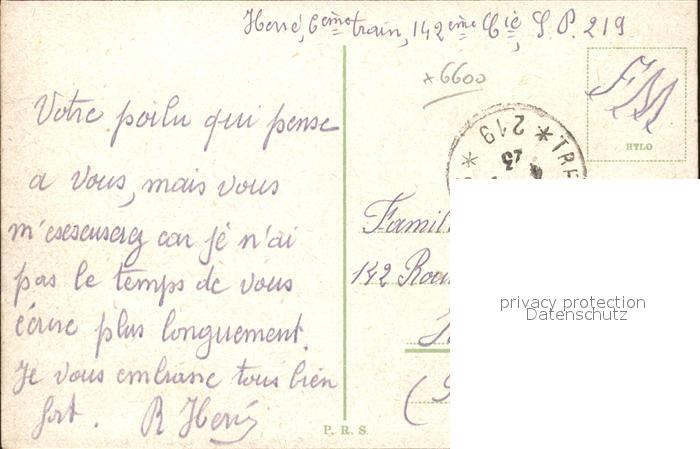 Hervé, 6ème train, 142ème Cie, S. P. 219
*6600
FM
HTLO
219 * TRE
*
Votre poilu qui pense
a vous, mais vous
m'esescuserez car je n'ai
pas le temps de vous
écrire plus longuement.
Je vous embrasse tous bien
fort. R Hervé
Famil
142 Rou
(
P. R. S.
privacy protection
Datenschutz